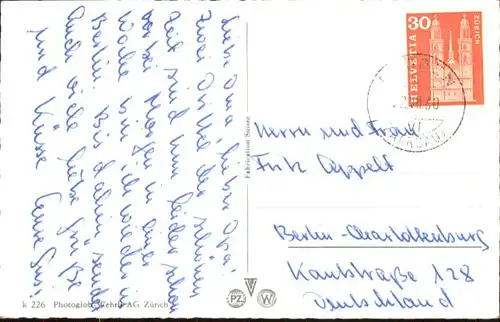 Liebe Oma, lieber Opa,
zwei Drittel der schönen
Zeit sind nun leider schon
vorbei. Morgen in einer
Woche bin ich wieder in
Berlin. Bis dahin sendet
Euch viele liebe Grüße
und Küsse Eure
k 226 Photoglob-Wehrli AG Zürich
Fabrication Suisse
PZ W
30
HELVETIA
ZÜRICH
60
Herrn und Frau
Fritz Appelt
Berlin-Charlottenburg
Kantstraße 128
Deutschland